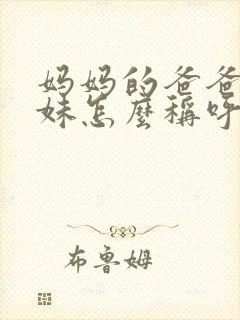 妈妈的爸爸
妹怎麼稱呼
布鲁姆